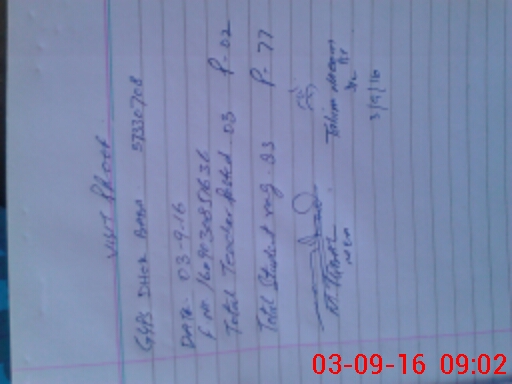 VISIT PROOF
GGPS DHOK BABA. 37330708
DATE. 03-9-16
F no. 1609030085163
Total Teacher Posted. 03 P-02
Total Student reg. 93 P-77
M. Tahir
MEA
3/9/16
03-09-16 09:02